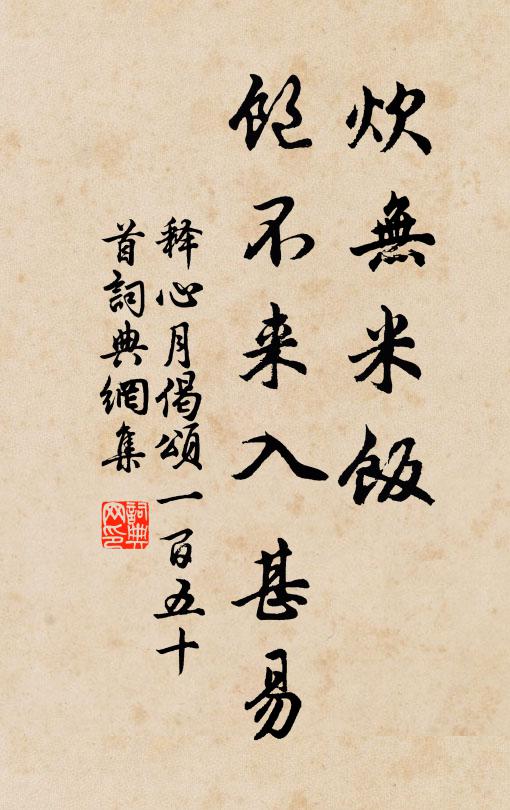 炊無米飯
飽不来入甚易
释心月偈頌一百五十
首詞典網集
詞典
网印